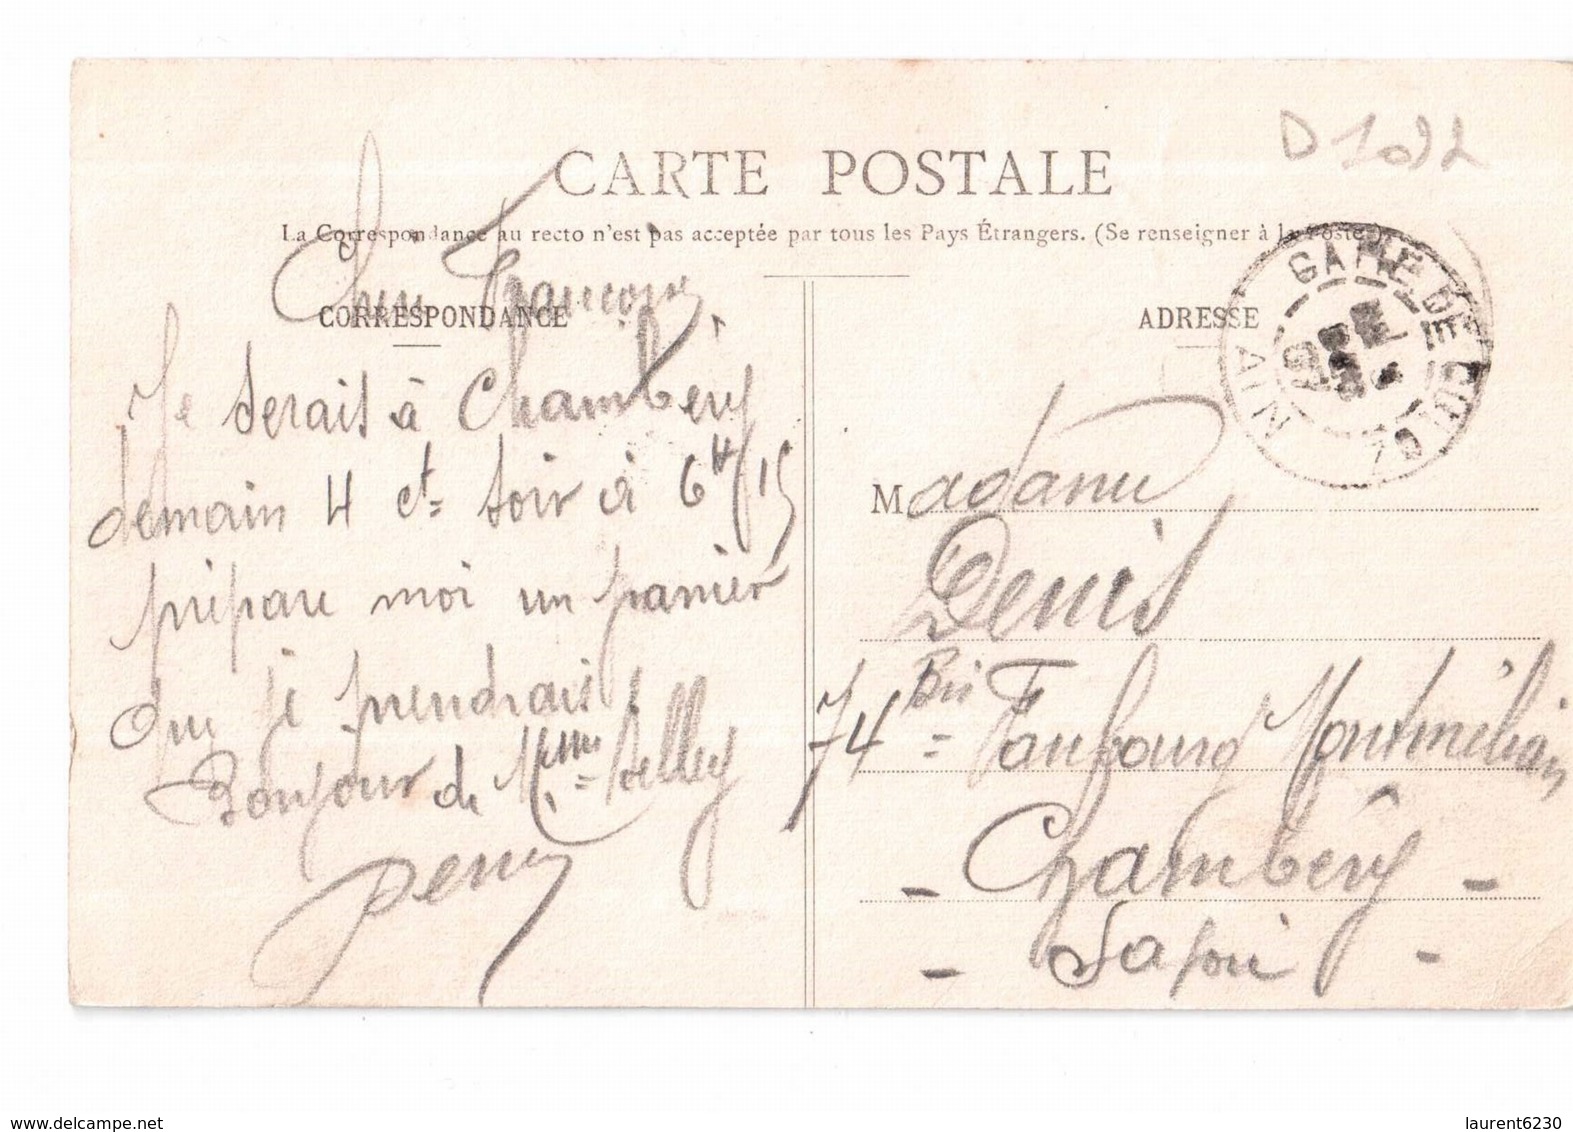 D 1092
CARTE POSTALE
La Correspondance au recto n'est pas acceptée par tous les Pays Étrangers. (Se renseigner à la Poste.)
CORRESPONDANCE
Je serais à Chambéry
demain 4 ct= soir à 6H/15
prépare moi un panier
que je prendrais
Bonjour de Mme=
ADRESSE
GARE DE CULOZ
AIN
Madame
Denis
74 Bis = Faubourg Montmélian
- Chambéry -
- Savoie -
www.delcampe.net
laurent6230